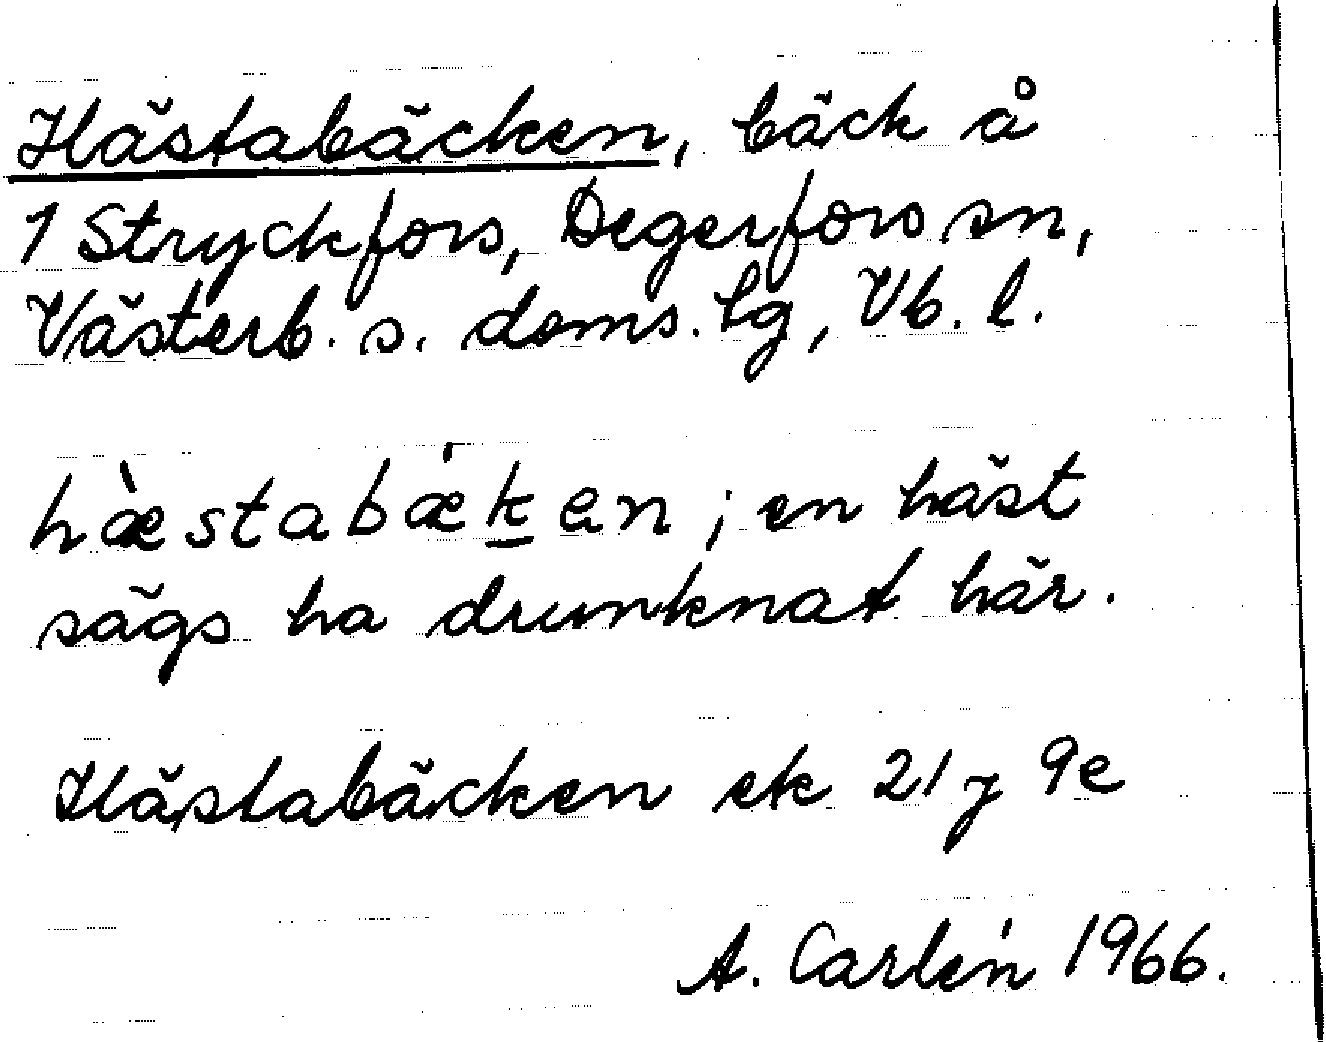 Hästabäcken, bäck å
1 Stryckfors, Degerfors sn,
Västerb. s. doms. lg, Vb. l.
hæ̀stabǽḵen; en häst
sägs ha drunknat här.
Hästabäcken ek 21 J 9e
A. Carlén 1966.